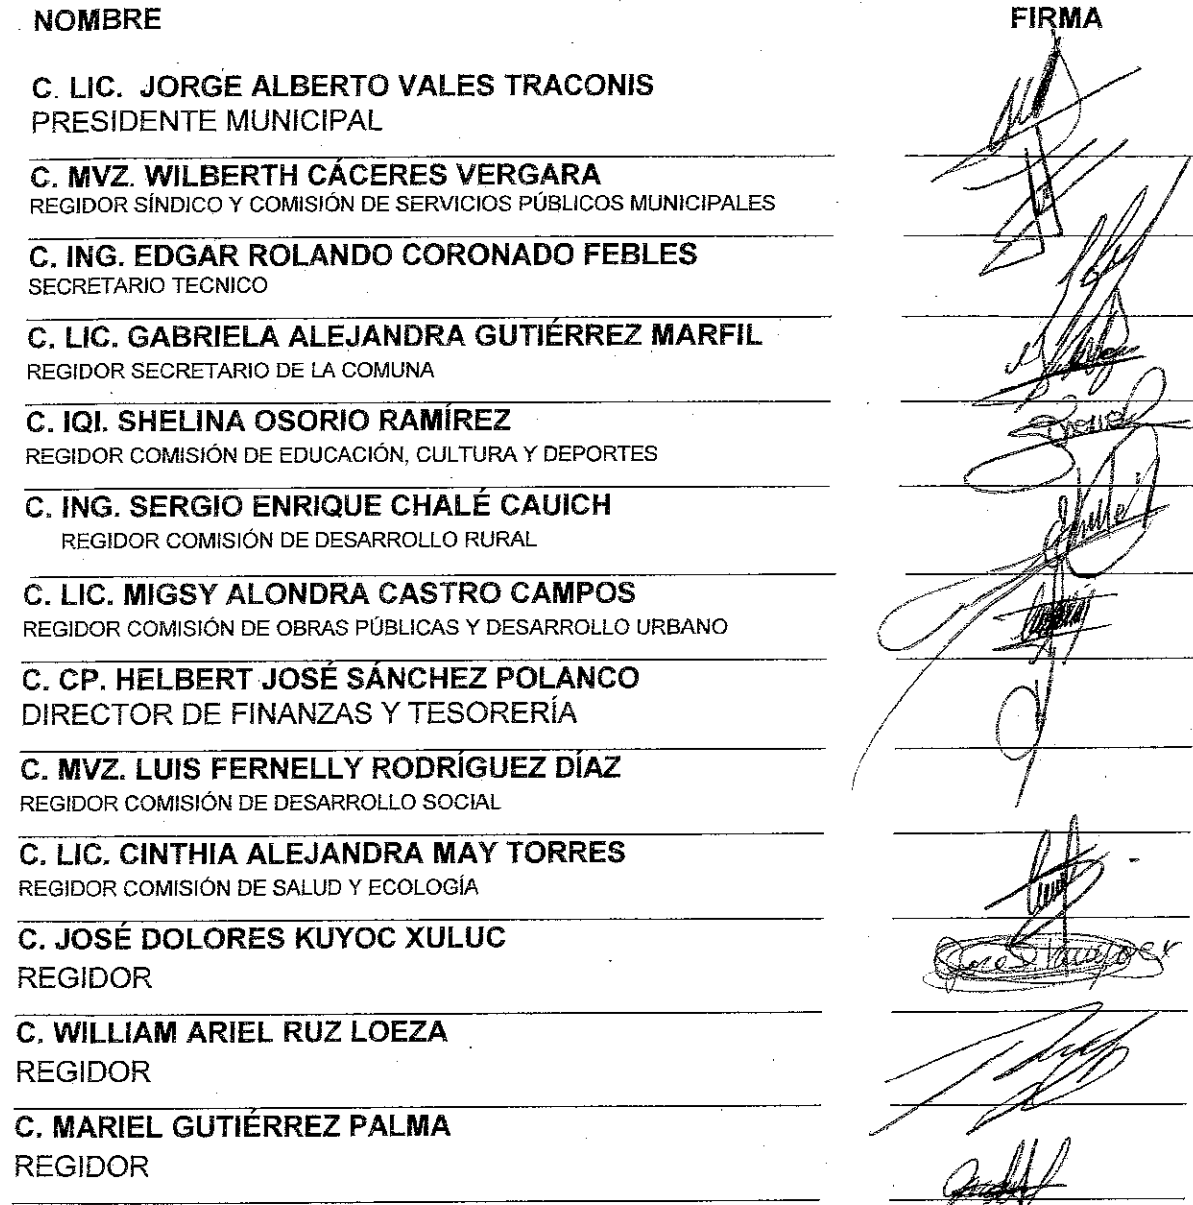 NOMBRE FIRMA
C. LIC. JORGE ALBERTO VALES TRACONIS
PRESIDENTE MUNICIPAL
C. MVZ. WILBERTH CÁCERES VERGARA
REGIDOR SÍNDICO Y COMISIÓN DE SERVICIOS PÚBLICOS MUNICIPALES
C. ING. EDGAR ROLANDO CORONADO FEBLES
SECRETARIO TECNICO
C. LIC. GABRIELA ALEJANDRA GUTIÉRREZ MARFIL
REGIDOR SECRETARIO DE LA COMUNA
C. IQI. SHELINA OSORIO RAMÍREZ
REGIDOR COMISIÓN DE EDUCACIÓN, CULTURA Y DEPORTES
C. ING. SERGIO ENRIQUE CHALÉ CAUICH
REGIDOR COMISIÓN DE DESARROLLO RURAL
C. LIC. MIGSY ALONDRA CASTRO CAMPOS
REGIDOR COMISIÓN DE OBRAS PÚBLICAS Y DESARROLLO URBANO
C. CP. HELBERT JOSÉ SÁNCHEZ POLANCO
DIRECTOR DE FINANZAS Y TESORERÍA
C. MVZ. LUIS FERNELLY RODRÍGUEZ DÍAZ
REGIDOR COMISIÓN DE DESARROLLO SOCIAL
C. LIC. CINTHIA ALEJANDRA MAY TORRES
REGIDOR COMISIÓN DE SALUD Y ECOLOGÍA
C. JOSÉ DOLORES KUYOC XULUC
REGIDOR
C. WILLIAM ARIEL RUZ LOEZA
REGIDOR
C. MARIEL GUTIÉRREZ PALMA
REGIDOR